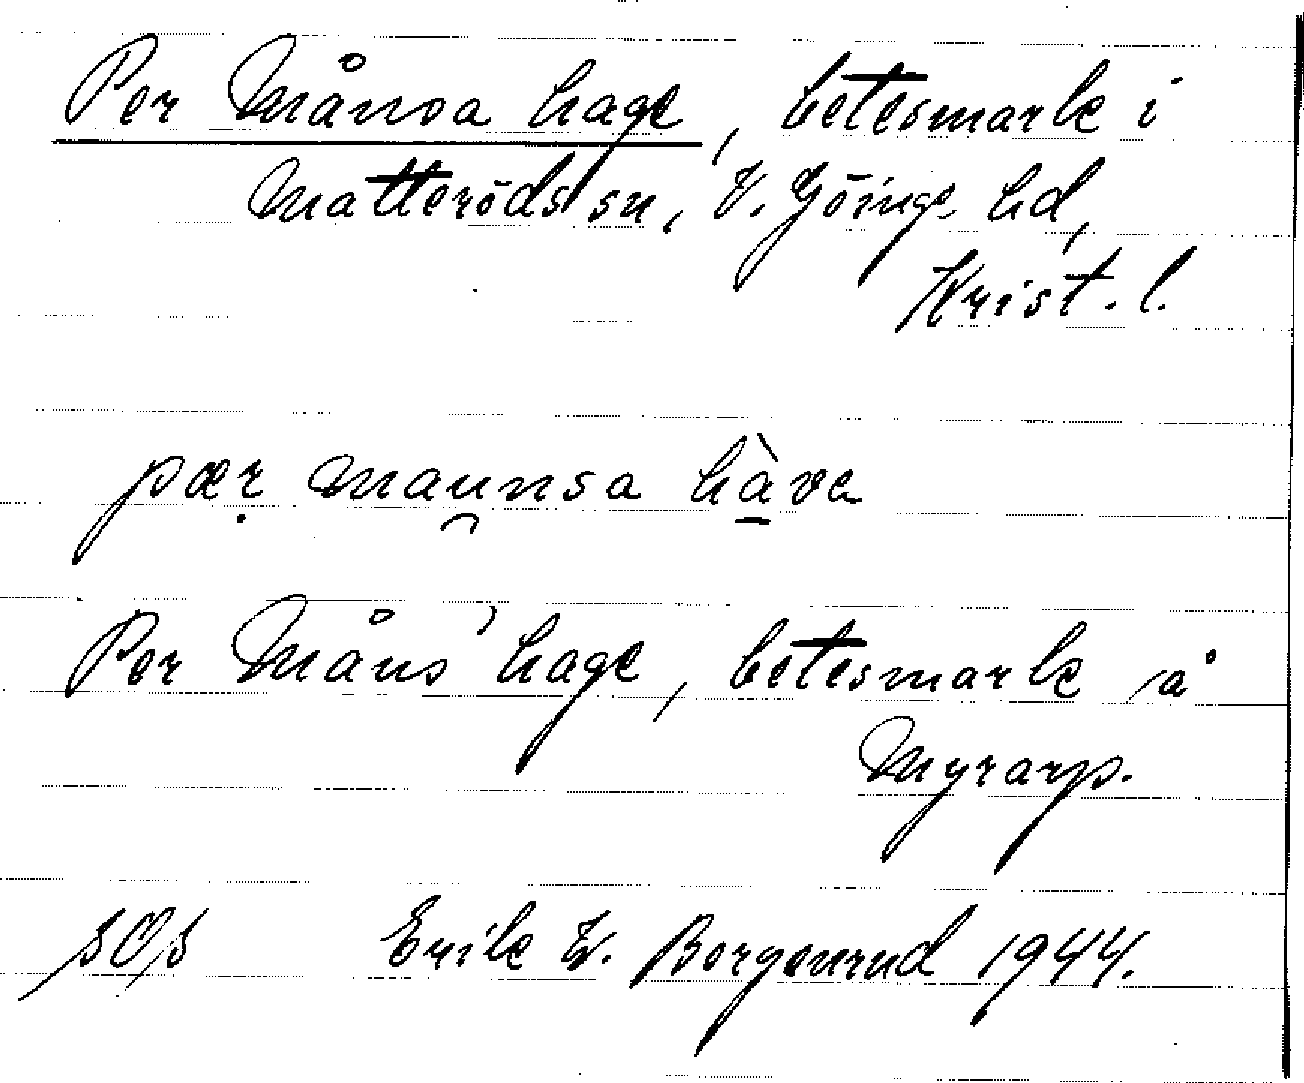 Per Månsa hage, betesmark i
Matteröds sn, V. Göinge hd,
Krist. l.
pær maunsa hàva
Per Måns' hage, betesmark å
Myrarp.
Erik W. Borgenrud 1944.